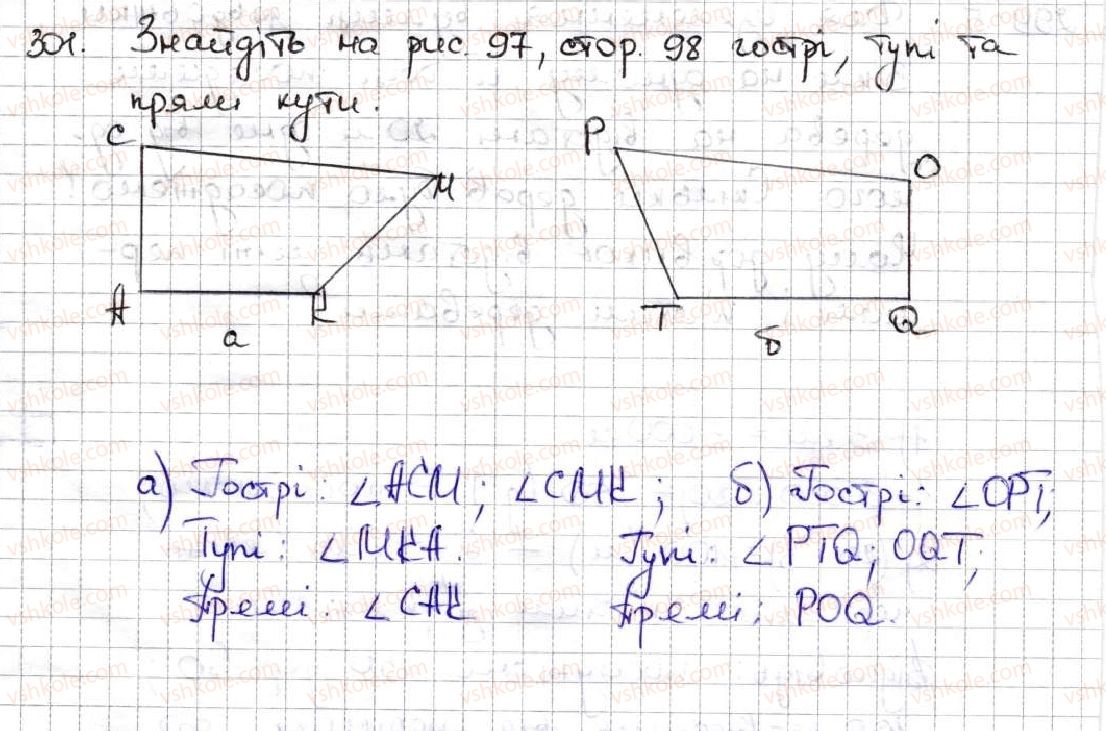 301. Знайдіть на рис. 97, стор. 98 гострі, тупі та
прямі кути.
C
M
A
K
а
P
O
T
Q
б
а) Гострі: ∠ACM; ∠CMK;
Тупі: ∠MKA.
Прямі: ∠CAK
б) Гострі: ∠OPT;
Тупі: ∠PTQ; OQT;
Прямі: POQ.
vshkole.com